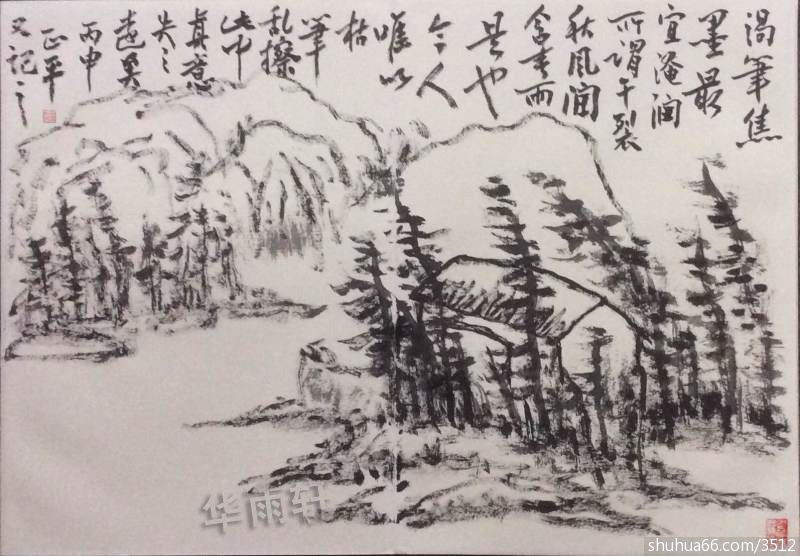 渴笔焦
墨最
宜淹润
所谓干裂
秋风润
含春雨
是也
今人
唯以
枯
笔
乱擦
此中
真意
失之
远矣
丙申
正平
又记之
华雨轩
shuhua66.com/3512